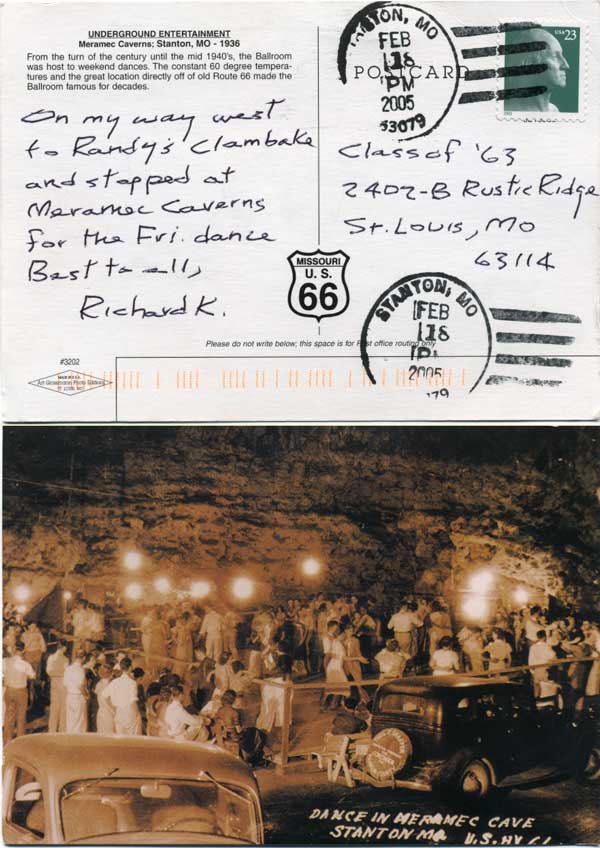 UNDERGROUND ENTERTAINMENT
Meramec Caverns; Stanton, MO - 1936
From the turn of the century until the mid 1940's, the Ballroom
was host to weekend dances. The constant 60 degree tempera-
tures and the great location directly off of old Route 66 made the
Ballroom famous for decades.
On my way west
to Randy's Clambake
and stopped at
Meramec Caverns
for the Fri. dance
Best to all,
Richard K.
STANTON, MO
FEB
18
PM
2005
63079
POSTCARD
USA 23
Class of '63
2402-B Rustic Ridge
St. Louis, Mo
63114
MISSOURI
U.S.
66
STANTON, MO
FEB
18
PM
2005
Please do not write below; this space is for Post office routing only
#3202
DANCE IN MERAMEC CAVE
STANTON MO U.S. HY